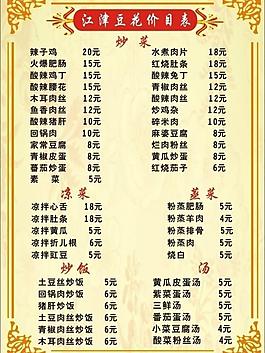 江津豆花价目表
炒 菜
辣子鸡 20元 水煮肉片 18元
火爆肥肠 15元 红烧肚条 18元
酸辣鸡丁 15元 酸辣兔丁 15元
酸辣腰花 15元 青椒肉丝 12元
木耳肉丝 12元 盐煎肉丝 12元
鱼香肉丝 12元 炒鸡杂 12元
酸辣猪肝 10元 碎米肉 10元
回锅肉 10元 麻婆豆腐 8元
家常豆腐 8元 烂肉粉丝 8元
青椒皮蛋 8元 黄瓜炒蛋 8元
番茄炒蛋 8元 红烧茄子 6元
素 菜 5元
凉菜 蒸菜
凉拌心舌 18元 粉蒸肥肠 5元
凉拌肚条 18元 粉蒸羊肉 4元
凉拌黄瓜 5元 粉蒸排骨 5元
凉拌折儿根 6元 粉蒸肉 5元
凉拌豇豆 5元 烧白 5元
炒饭 汤
土豆丝炒饭 5元 黄瓜皮蛋汤 5元
回锅肉炒饭 6元 紫菜蛋汤 5元
猪肝炒饭 6元 三鲜汤 5元
土豆肉丝炒饭 6元 番茄蛋汤 5元
青椒肉丝炒饭 6元 小菜豆腐汤 4元
木耳肉丝炒饭 6元 酸菜粉丝汤 4元